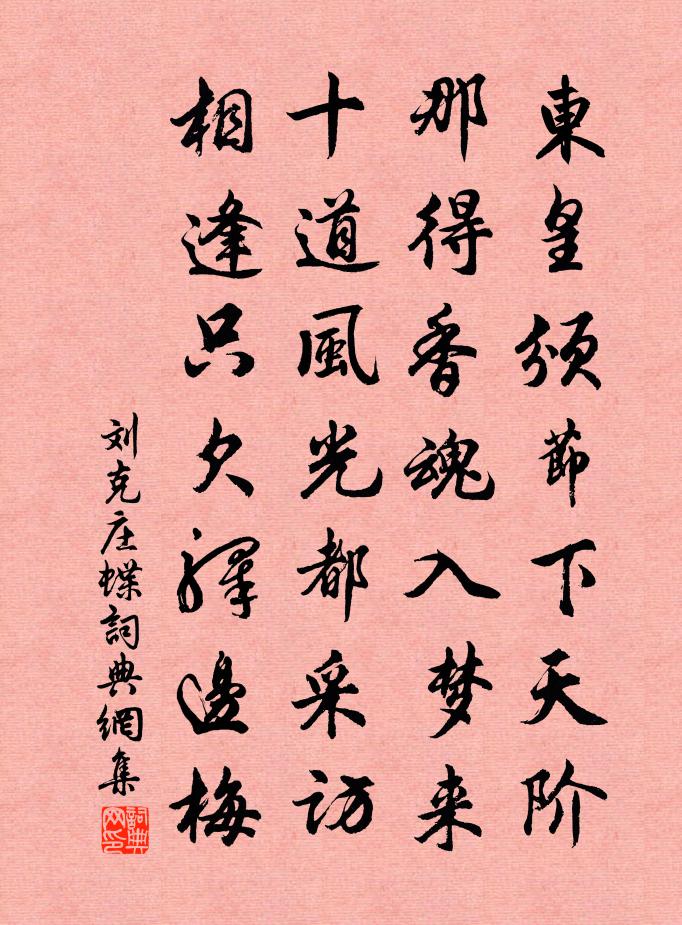 東皇须節下天阶
那得香魂入梦来
十道風光都采访
相逢只欠驛邊梅
刘克庄蝶詞典網集
詞典网印